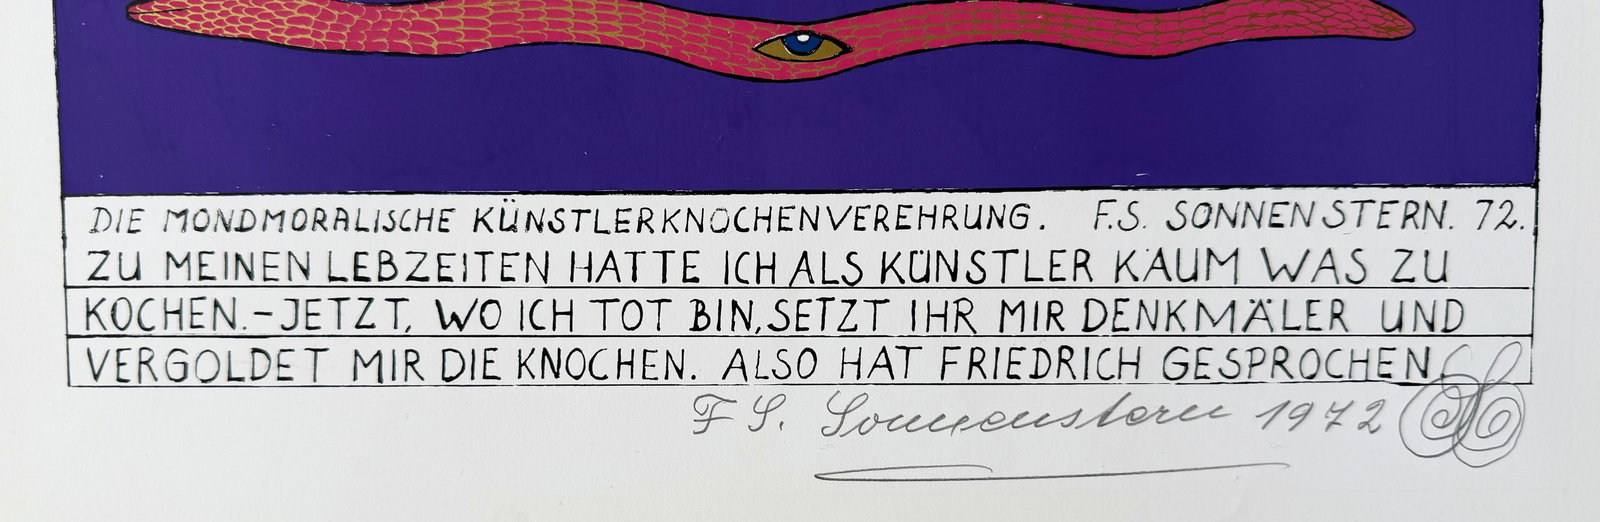 DIE MONDMORALISCHE KÜNSTLERKNOCHENVEREHRUNG. F.S. SONNENSTERN. 72.
ZU MEINEN LEBZEITEN HATTE ICH ALS KÜNSTLER KAUM WAS ZU
KOCHEN.-JETZT, WO ICH TOT BIN, SETZT IHR MIR DENKMÄLER UND
VERGOLDET MIR DIE KNOCHEN. ALSO HAT FRIEDRICH GESPROCHEN.
F S. Sonnenstern 1972